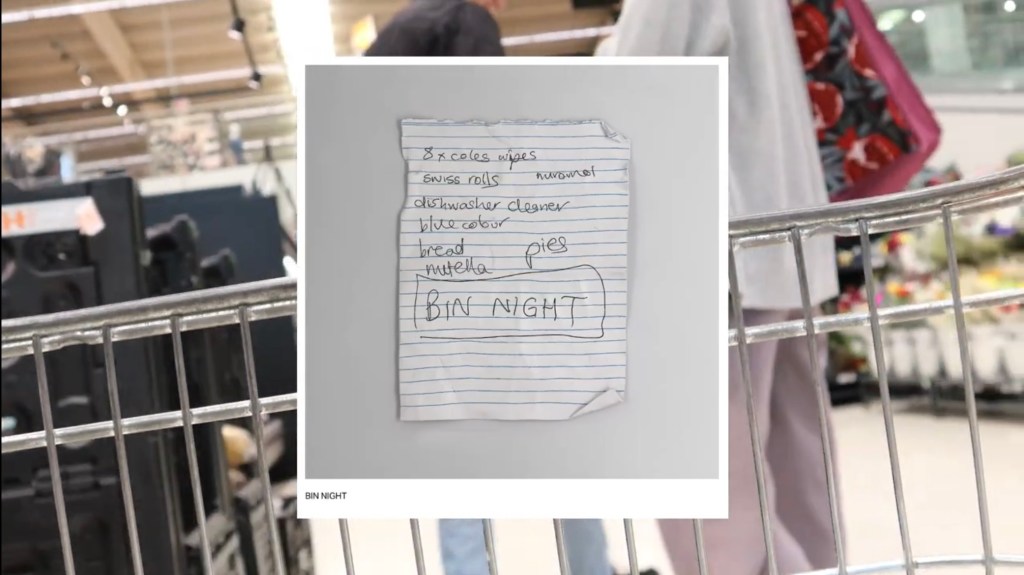 8 x coles wipes
swiss rolls nuromol
dishwasher cleaner
blue colour
bread pies
nutella
BIN NIGHT
BIN NIGHT